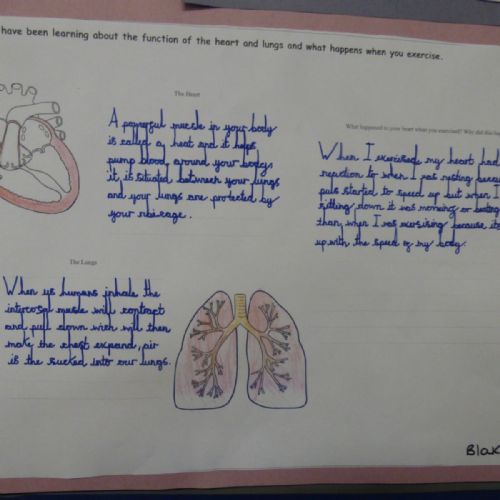 have been learning about the function of the heart and lungs and what happens when you exercise.
The Heart
A powerful muscle in your body
is called a heart and it helps
pump blood around your body,
it is situated between your lungs
and your lungs are protected by
your
What happened to your heart when you exercised? Why did this
When I exercised my heart had
reaction to when I was resting
started to speed up but when I
sitting down it was or
than when I was exercising because it
up with the speed of my body.
The Lungs
When us humans inhale the
muscle will contract
and pull down wich will then
make the chest expand, air
is the sucked into our lungs.
Blak